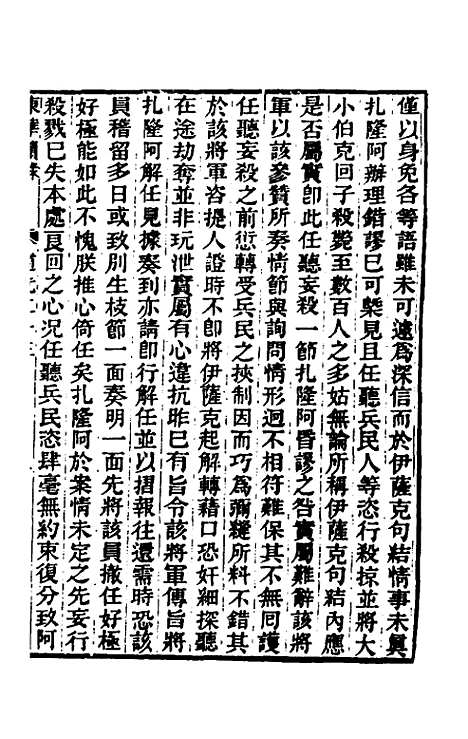 僅以身免各等語雖未可遽爲深信而於伊薩克句結情事未眞
扎隆阿辦理錯謬已可槩見且任聽兵民人等恣行殺掠並將大
小伯克回子殺斃至數百人之多姑無論所稱伊薩克句結內應
是否屬實卽此任聽妄殺一節扎隆阿昏謬之咎實屬難辭該將
軍以該參贊所奏情節與詢問情形迥不相符難保其不無囘護
任聽妄殺之前愆轉受兵民之挾制因而巧爲彌縫所料不錯其
於該將軍咨提人證時不卽將伊薩克起解轉藉口恐奸細探聽
在途劫奪並非玩泄實屬有心違抗昨已有旨令該將軍傳旨將
扎隆阿解任見據奏到亦請卽行解任並以摺報往還需時恐該
員稽留多日或致別生枝節一面奏明一面先將該員撤任好極
好極能如此不愧朕推心倚任矣扎隆阿於案情未定之先妄行
殺戮已失本處良回之心况任聽兵民恣肆毫無約束復分致阿
東華續錄 道光二十三